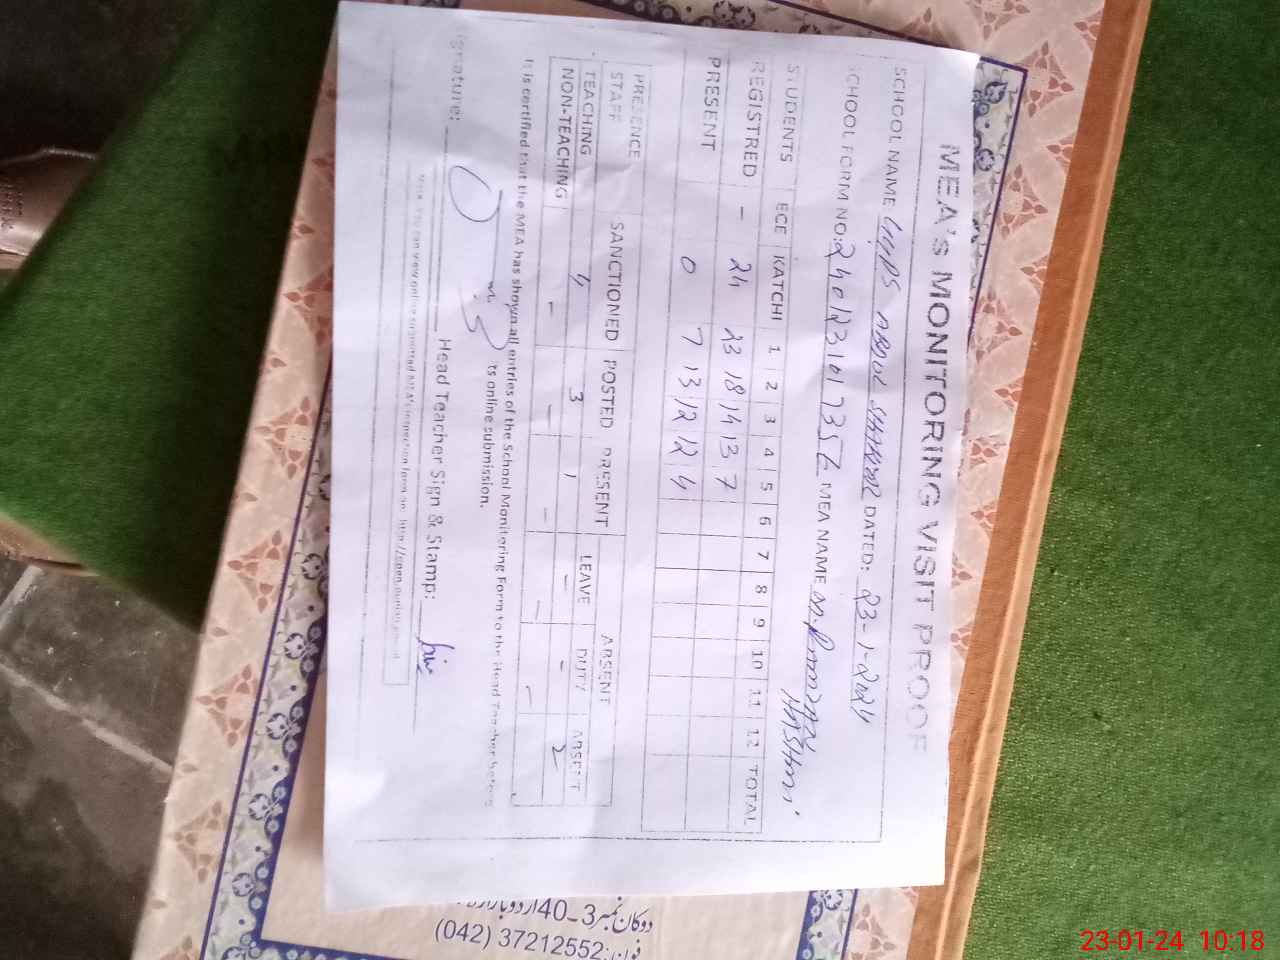 MEA's MONITORING VISIT PROOF
SCHOOL NAME GMPS ABDUL SHAKOOR DATED: 23-1-2024
SCHOOL FORM NO: MEA NAME M. RAMZAN HASHMI
STUDENTS ECE KATCHI 1 2 3 4 5 6 7 8 9 10 11 12 TOTAL
REGISTRED - 24 23 18 14 13 7
PRESENT 0 7 13 12 12 4
PRESENCE STAFF SANCTIONED POSTED PRESENT ABSENT
LEAVE DUTY ABSENT
TEACHING 4 3 1 - - 2
NON-TEACHING - - - - -
It is certified that the MEA has shown all entries of the School Monitoring Form to the Head Teacher before
its online submission.
Signature: Head Teacher Sign & Stamp:
Note: You can view online submitted MEA's inspection form on: http://open.punjab.gov.pk
دوکان نمبر 3-40 اردو بازار
فون: (042) 37212552
23-01-24 10:18